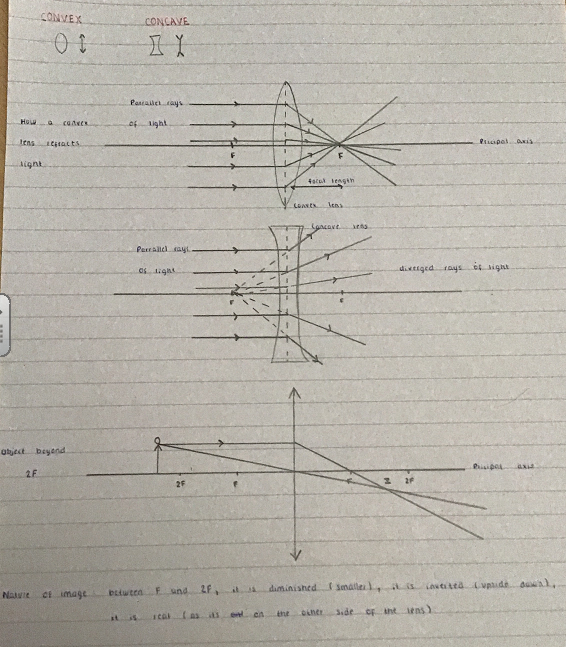 CONVEX CONCAVE
Parrallel rays
of light
How a convex
lens refracts
light
Principal axis
F F
focal length
Convex lens
Concave lens
Parrallel rays
of light
diverged rays of light
F F
Object beyond
2F
2F F F I 2F
Pricipal axis
Nature of image: between F and 2F, it is diminished (smaller), it is inverted (upside down),
it is real (as its on the other side of the lens)